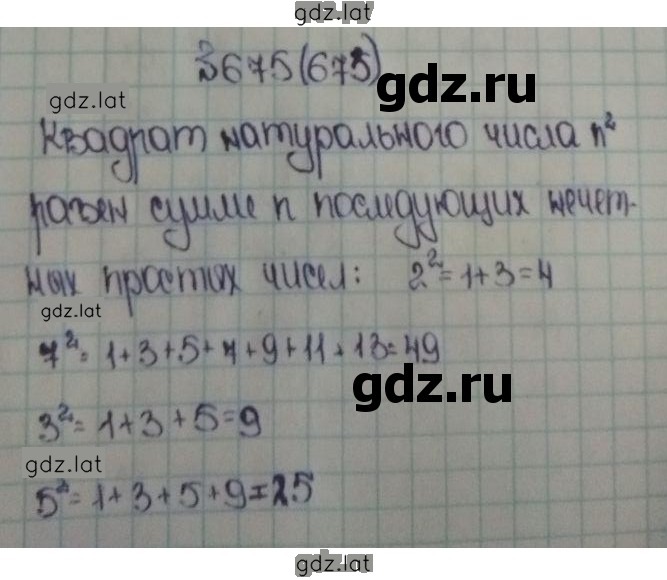 gdz.lat
№675(673)
gdz.ru
gdz.lat
Квадрат натурального числа n²
равен сумме n последующих нечет-
ных простых чисел: 2² = 1+3=4
gdz.lat
7² = 1+3+5+7+9+11+13=49
gdz.ru
3² = 1+3+5=9
gdz.lat
5² = 1+3+5+9=25
gdz.lat